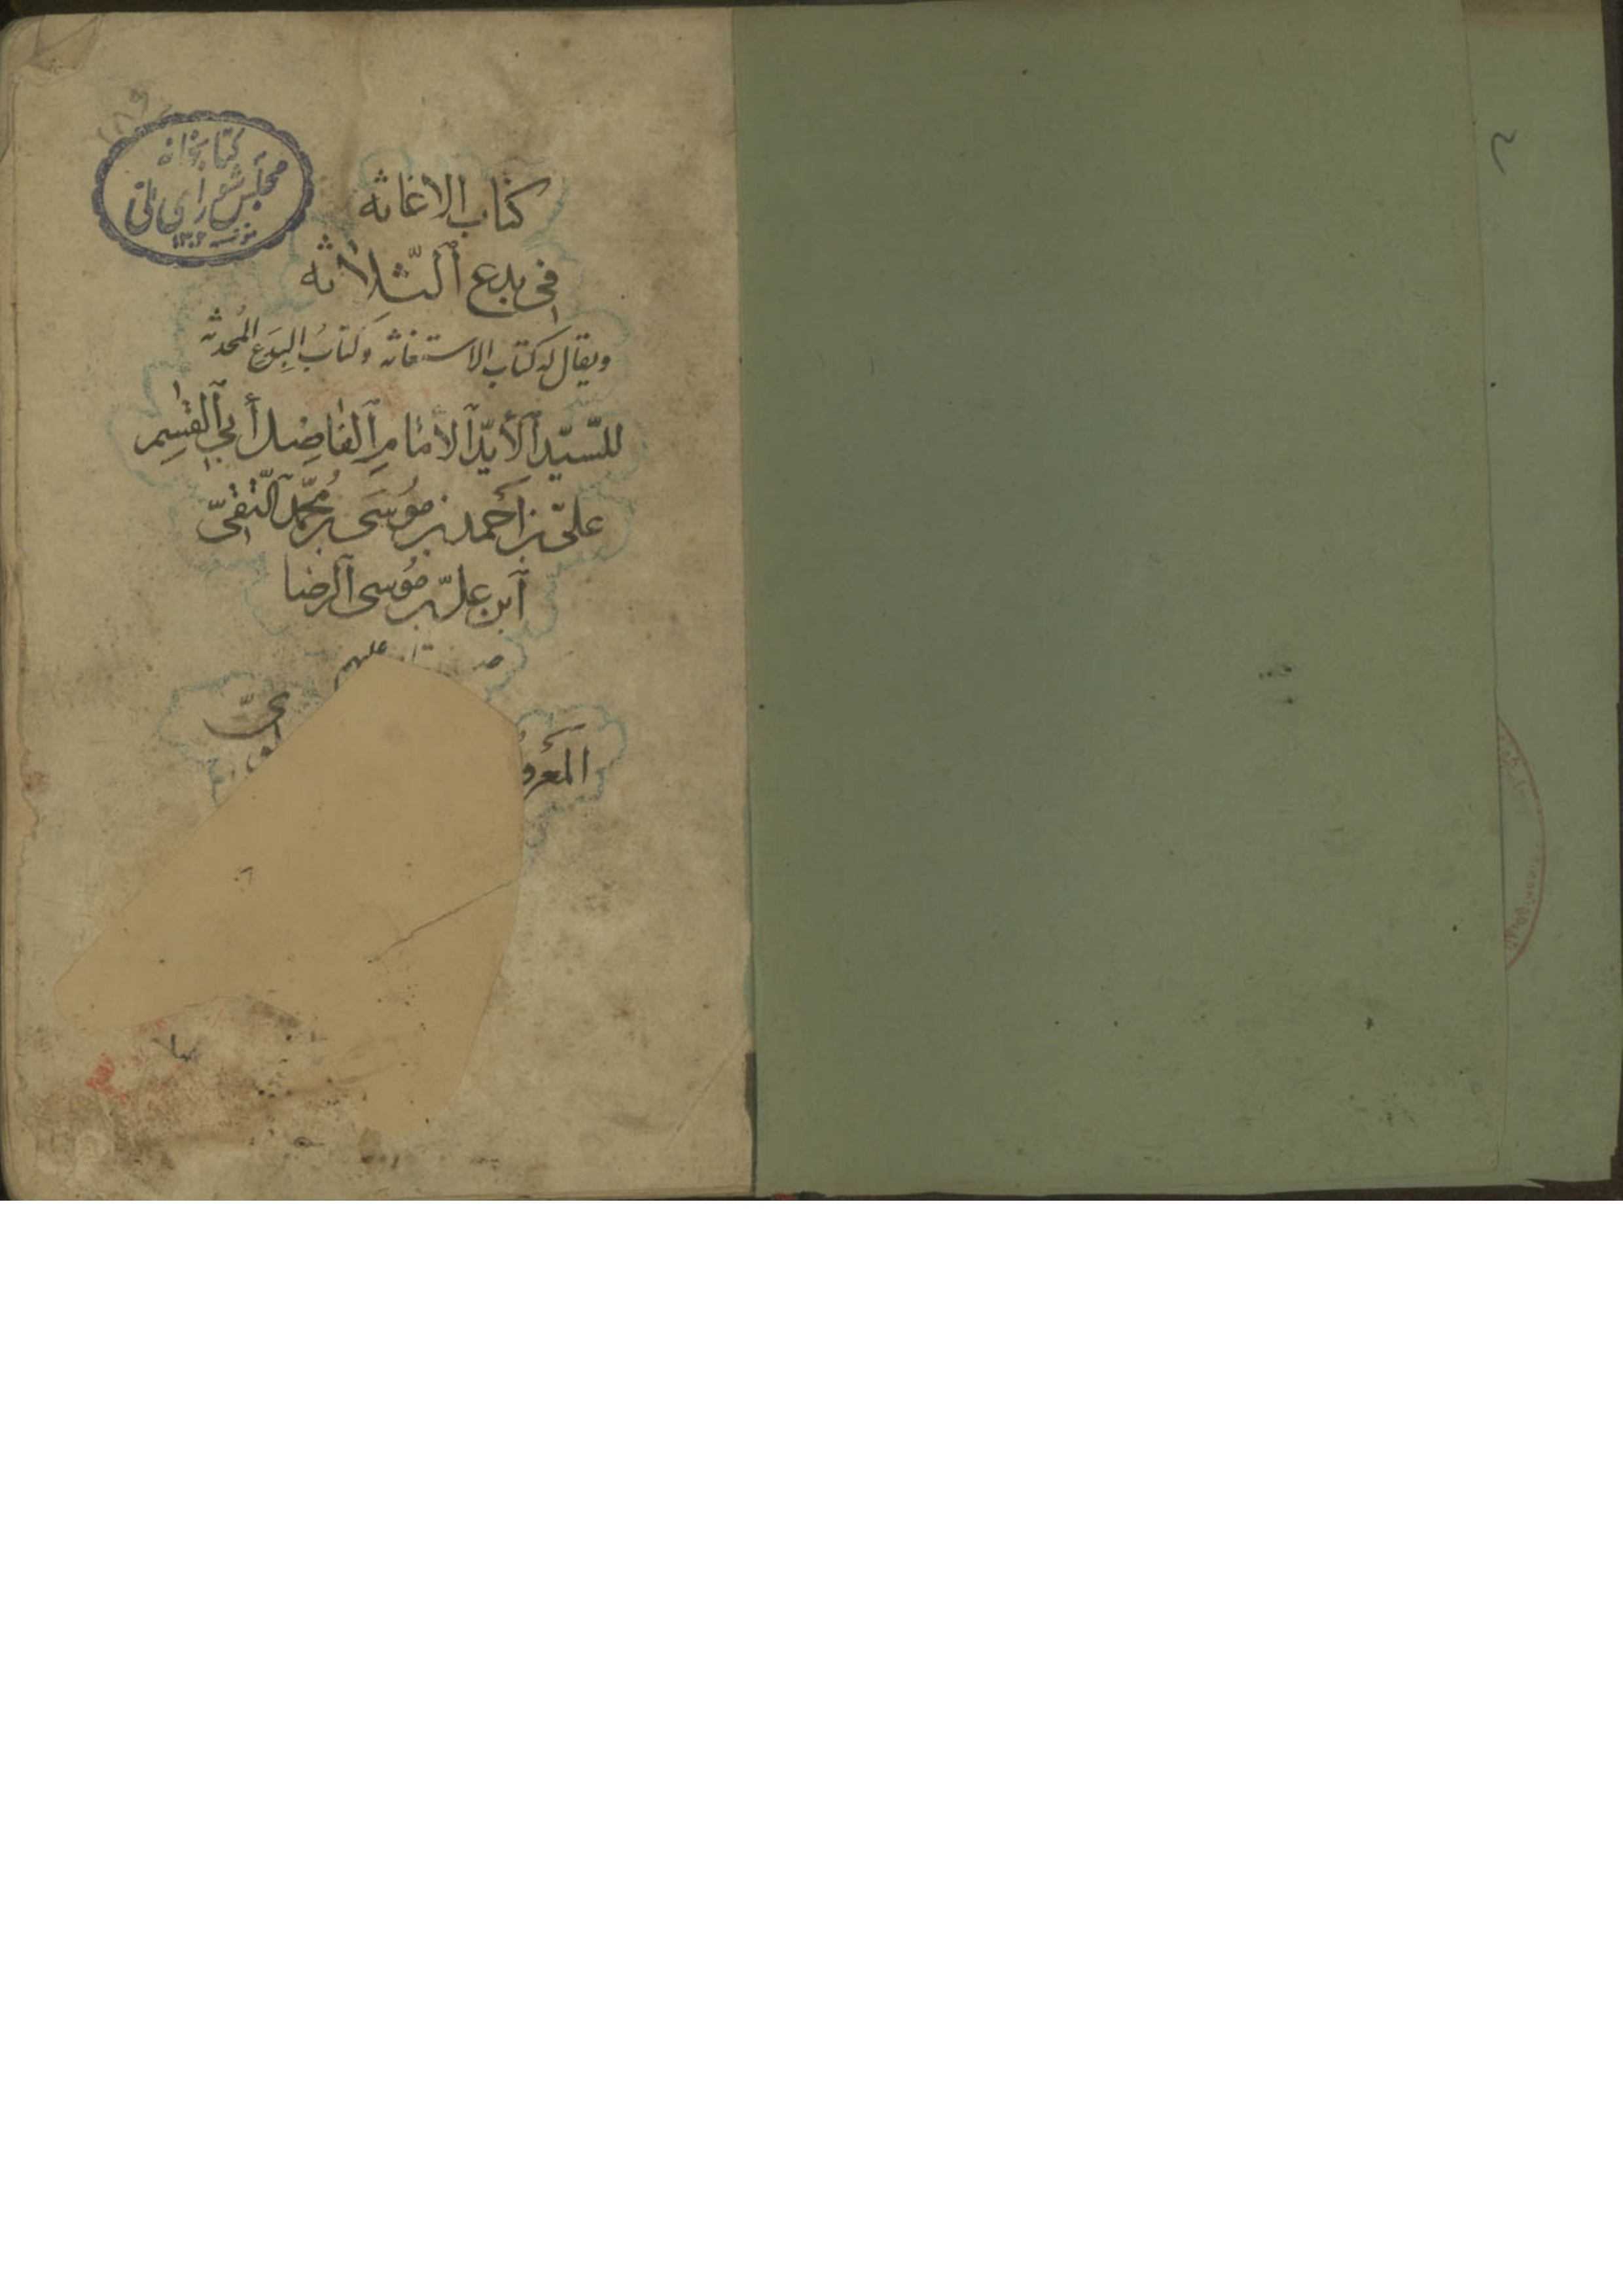 كتابخانه
مجلس شورای ملی
كتاب الاغاثه
فی بدع ٱلثّلاثه
ويقال له كتاب الاستغاثه وكتابُ البِدَع المُحدثه
للسّيّد ٱلأيّد ٱلامام ٱلفاضل أبي ٱلقٰسِم
علیّ بن أحمد بن مُوسَى بن مُحَّمد ٱلتّقیّ
ٱبن علیّ بن مُوسى ٱلرضا
عليهم
المَعرو